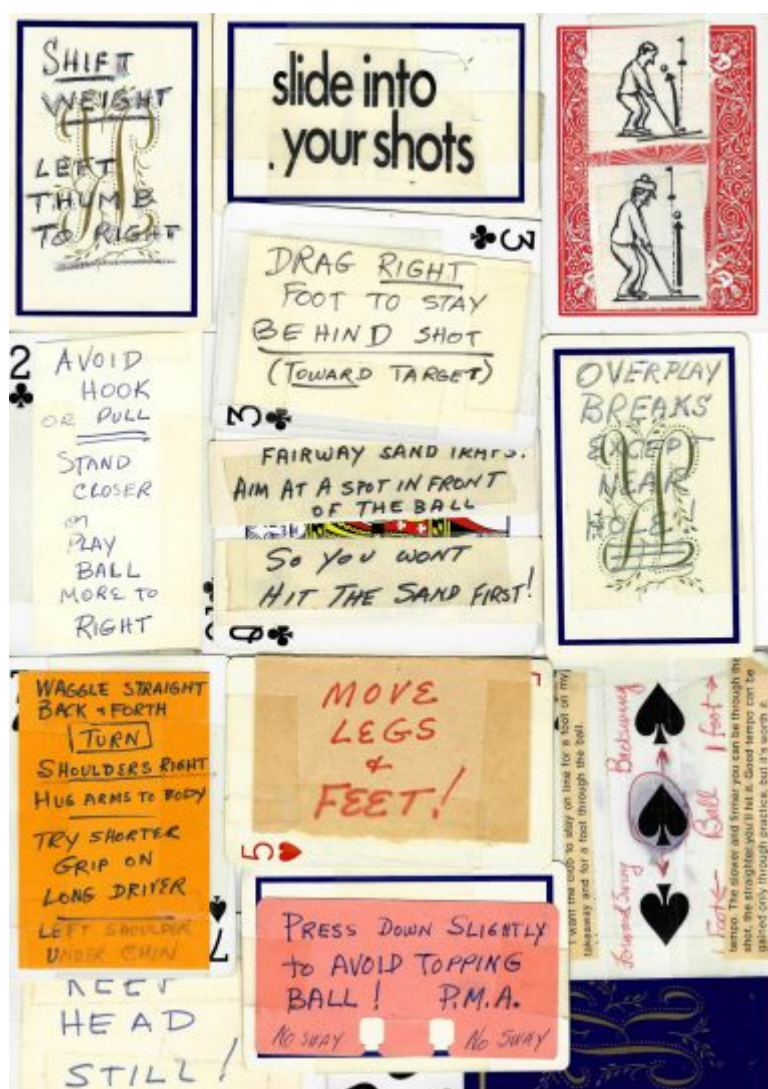 SHIFT
WEIGHT
LEFT
THUMB
TO RIGHT
slide into
your shots
3
DRAG RIGHT
FOOT TO STAY
BEHIND SHOT
(TOWARD TARGET)
3
2
AVOID
HOOK
OR PULL
STAND
CLOSER
or
PLAY
BALL
MORE TO
RIGHT
FAIRWAY SAND TRAPS:
AIM AT A SPOT IN FRONT
OF THE BALL
SO YOU WONT
HIT THE SAND FIRST!
Q
OVERPLAY
BREAKS
EXCEPT
NEAR
HOLE
WAGGLE STRAIGHT
BACK & FORTH
TURN
SHOULDERS RIGHT
HUG ARMS TO BODY
TRY SHORTER
GRIP ON
LONG DRIVER
LEFT SHOULDER
UNDER CHIN
7
MOVE
LEGS
&
FEET!
5
I want the club to stay on line for a foot on my
takeaway and for a foot through the ball.
Backswing
Forward Swing
1 foot →
Ball
1 Foot ←
tempo. The slower and firmer you can be through the
shot, the straighter you'll hit it. Good tempo can be
gained only through practice, but it's worth it.
PRESS DOWN SLIGHTLY
to AVOID TOPPING
BALL! P.M.A.
NO SWAY NO SWAY
KEEP
HEAD
STILL!